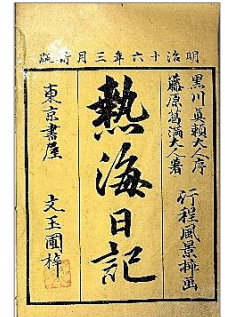 明治十六年三月新鐫
黒川真頼大人序
藤原葛満大人著
行程風景挿画
熱海日記
東京書屋
文玉圃梓